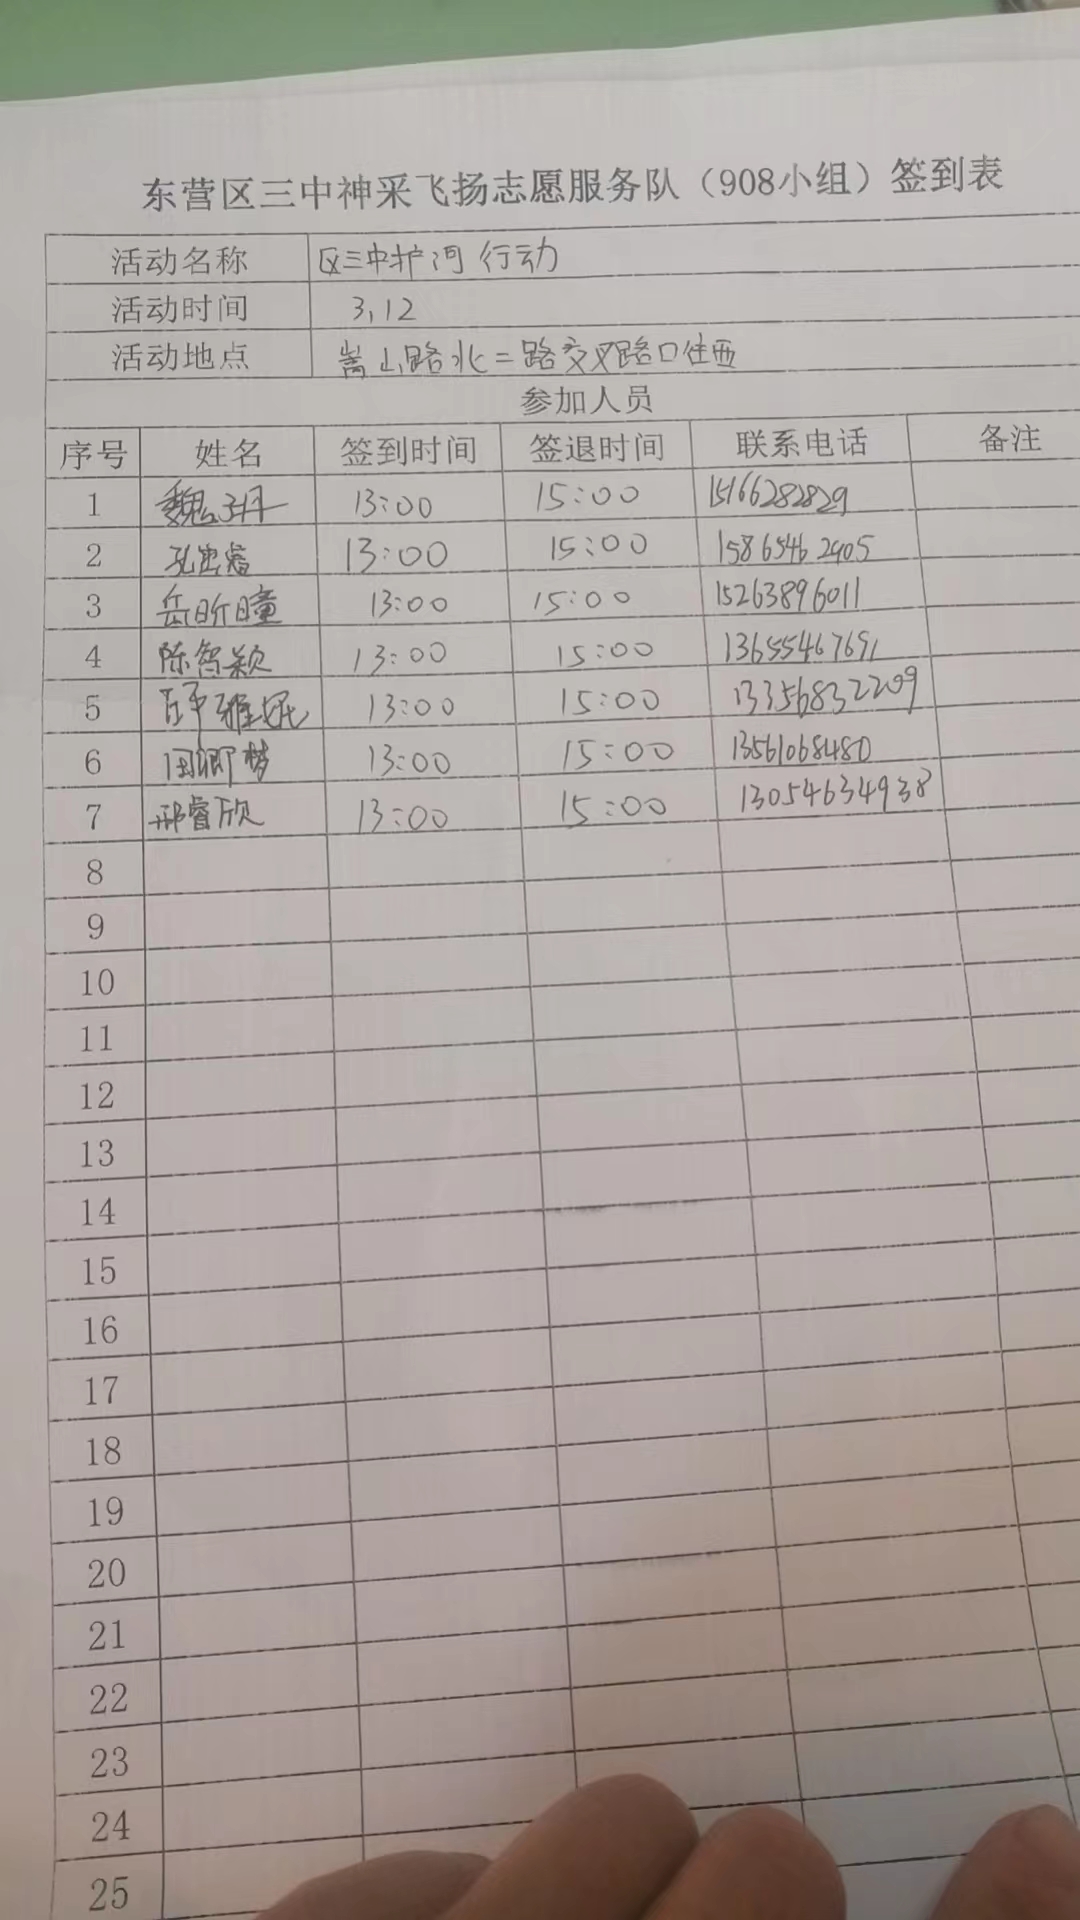 东营区三中神采飞扬志愿服务队（908小组）签到表
活动名称 区三中护河行动
活动时间 3,12
活动地点 嵩山路北二路交叉路口往西
参加人员
序号 姓名 签到时间 签退时间 联系电话 备注
1 魏 13:00 15:00 15166282829
2 孔 13:00 15:00 15865462905
3 岳昕瞳 13:00 15:00 15263896011
4 陈智颖 13:00 15:00 13655467691
5 薛雅妮 13:00 15:00 13356832209
6 田卿梦 13:00 15:00 13561068480
7 邢睿欣 13:00 15:00 13054634938
8
9
10
11
12
13
14
15
16
17
18
19
20
21
22
23
24
25